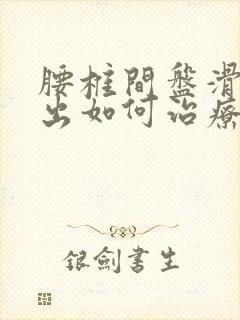 腰椎間盤滑
出如何治療
银劍書生